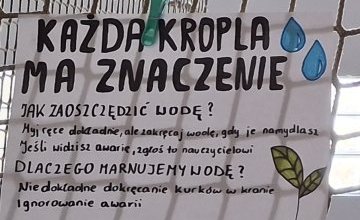 KAŻDA KROPLA
MA ZNACZENIE
JAK ZAOSZCZĘDZIĆ WODĘ?
Myj ręce dokładnie, ale zakręcaj wodę, gdy je namydlasz
Jeśli widzisz awarię, zgłoś to nauczycielowi
DLACZEGO MARNUJEMY WODĘ?
Niedokładne dokręcanie kurków w kranie
Ignorowanie awarii